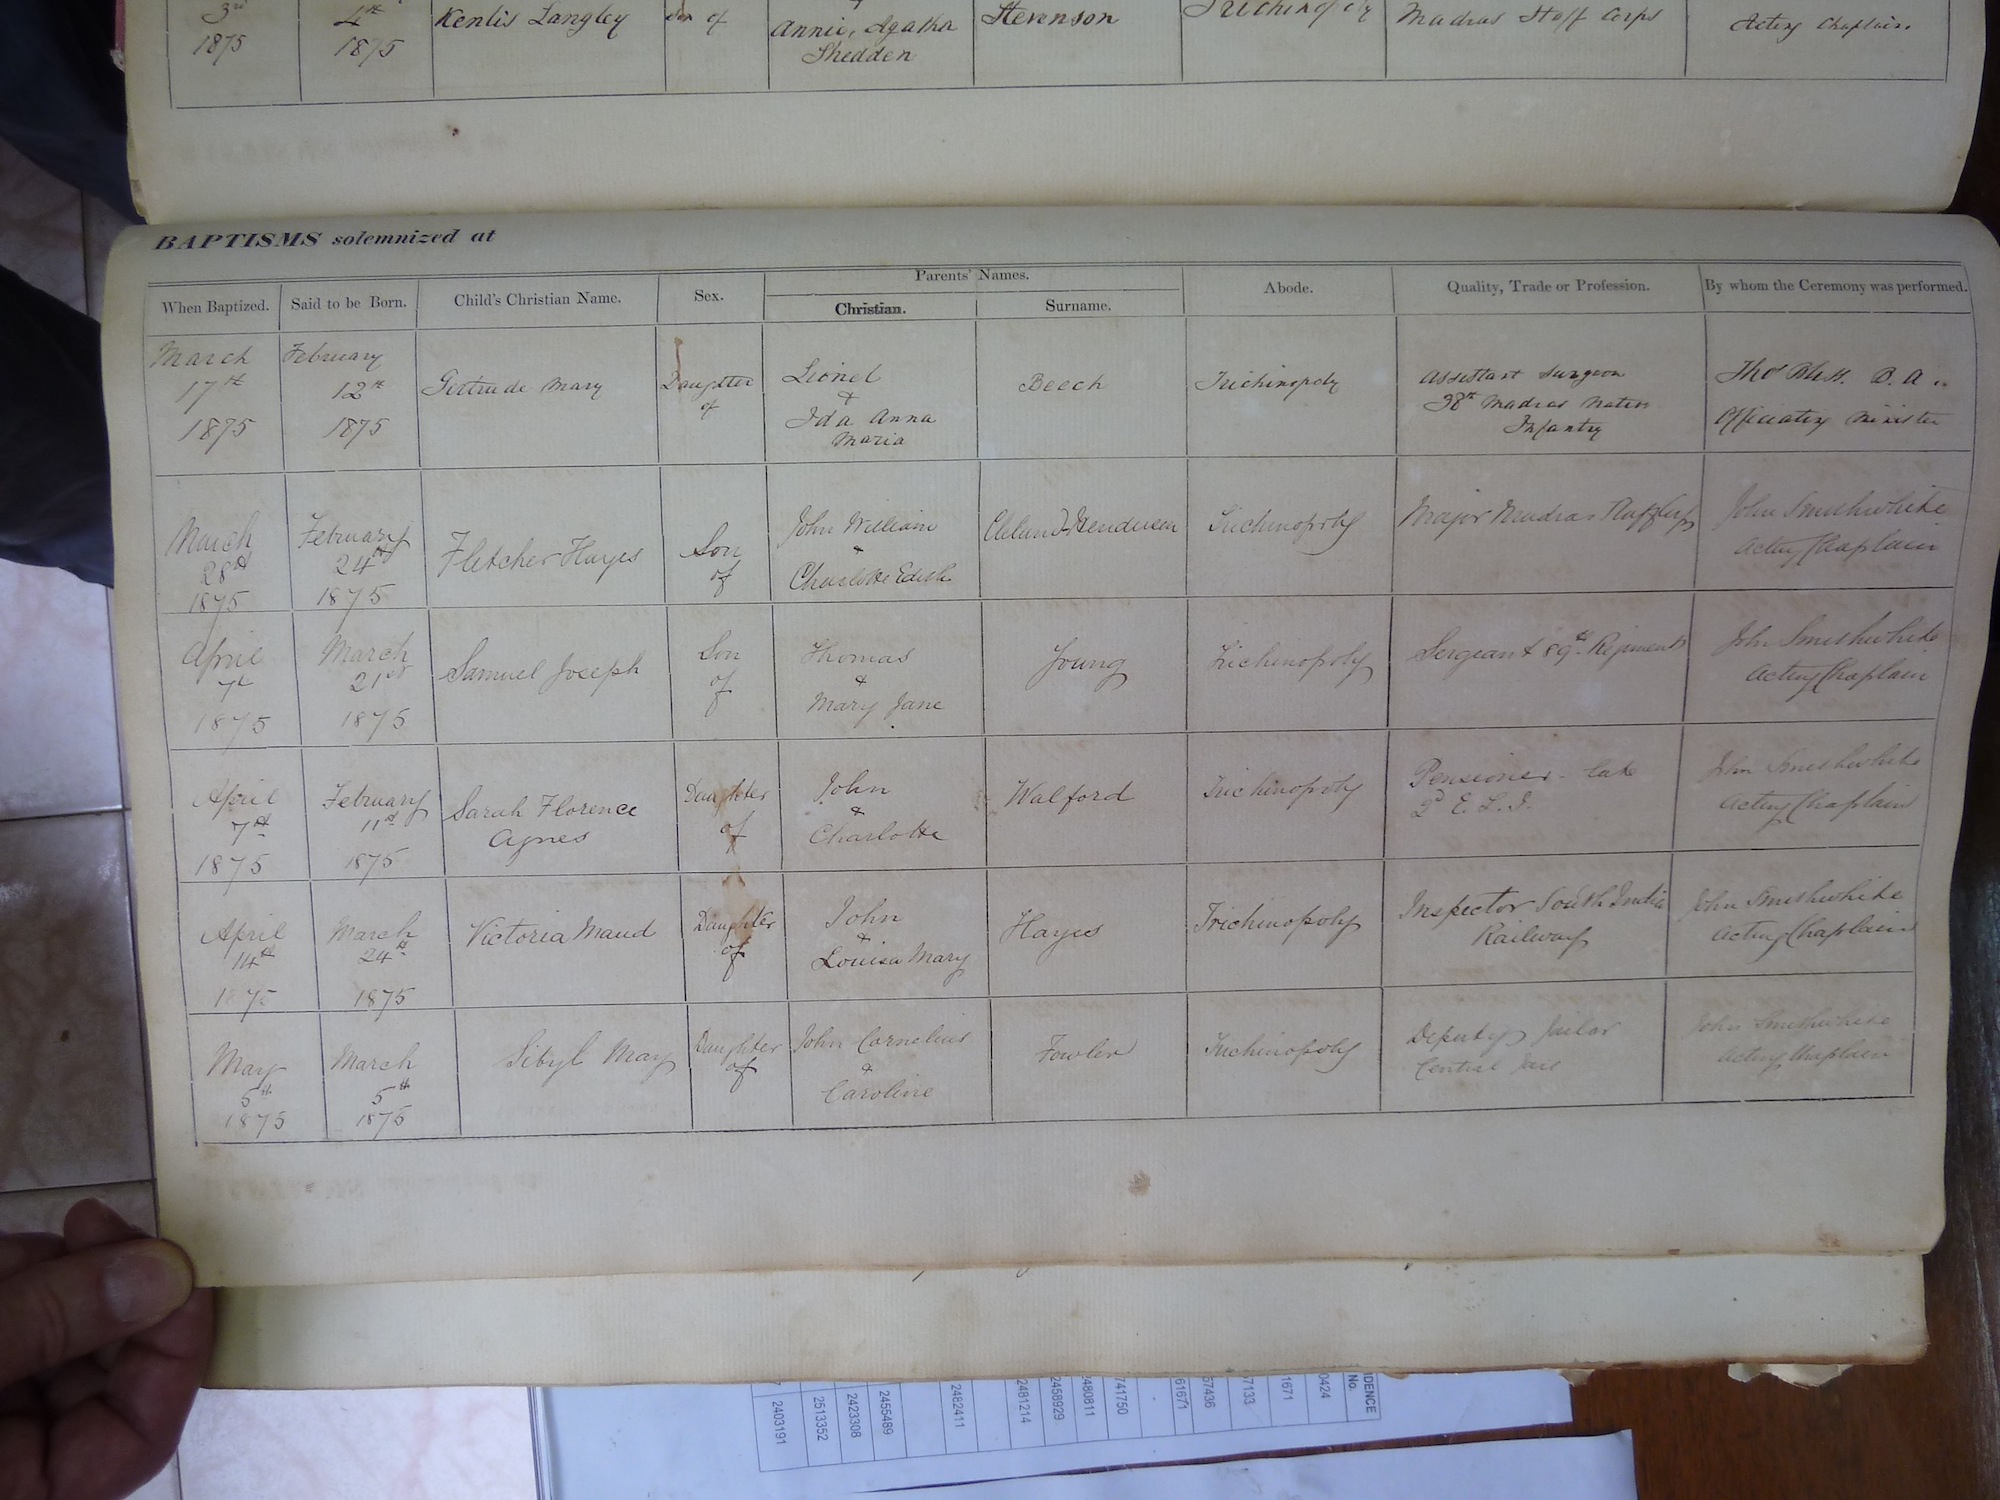 3rd
1875
4th
1875
Kenlis Langley
Son of
&
Annie, Agatha
Shedden
Stevenson
Trichinopoly
Madras Staff Corps
Acting Chaplain.
BAPTISMS solemnized at
When Baptized.
Said to be Born.
Child's Christian Name.
Sex.
Parents' Names.
Christian.
Surname.
Abode.
Quality, Trade or Profession.
By whom the Ceremony was performed.
March
17th
1875
February
12th
1875
Gertrude Mary
Daughter
of
Lionel
&
Ida Anna
Maria
Beech
Trichinopoly
Assistant Surgeon
38th Madras Native
Infantry
Thos B. A.
Officiating Minister
March
28th
1875
February
24th
1875
Fletcher Hayes
Son
of
John William
&
Charlotte Edith
Cleland Henderson
Trichinopoly
Major Madras Staff Corps
John Smithwhite
Acting Chaplain
April
7th
1875
March
21st
1875
Samuel Joseph
Son
of
Thomas
&
Mary Jane
Young
Trichinopoly
Sergeant 89th Regiment
John Smithwhite
Acting Chaplain
April
7th
1875
February
11th
1875
Sarah Florence
Agnes
Daughter
of
John
&
Charlotte
Walford
Trichinopoly
Pensioner - late
2d E. L. I.
John Smithwhite
Acting Chaplain
April
14th
1875
March
24th
1875
Victoria Maud
Daughter
of
John
&
Louisa Mary
Hayes
Trichinopoly
Inspector South India
Railway
John Smithwhite
Acting Chaplain
May
5th
1875
March
5th
1875
Sibyl May
Daughter
of
John Cornelius
&
Caroline
Fowler
Trichinopoly
Deputy Jailor
Central Jail
John Smithwhite
Acting Chaplain
IDENCE
No.
0424
1671
57133
57436
61671
741750
480811
2458929
2481214
2482411
2455489
2423308
2513352
2403191